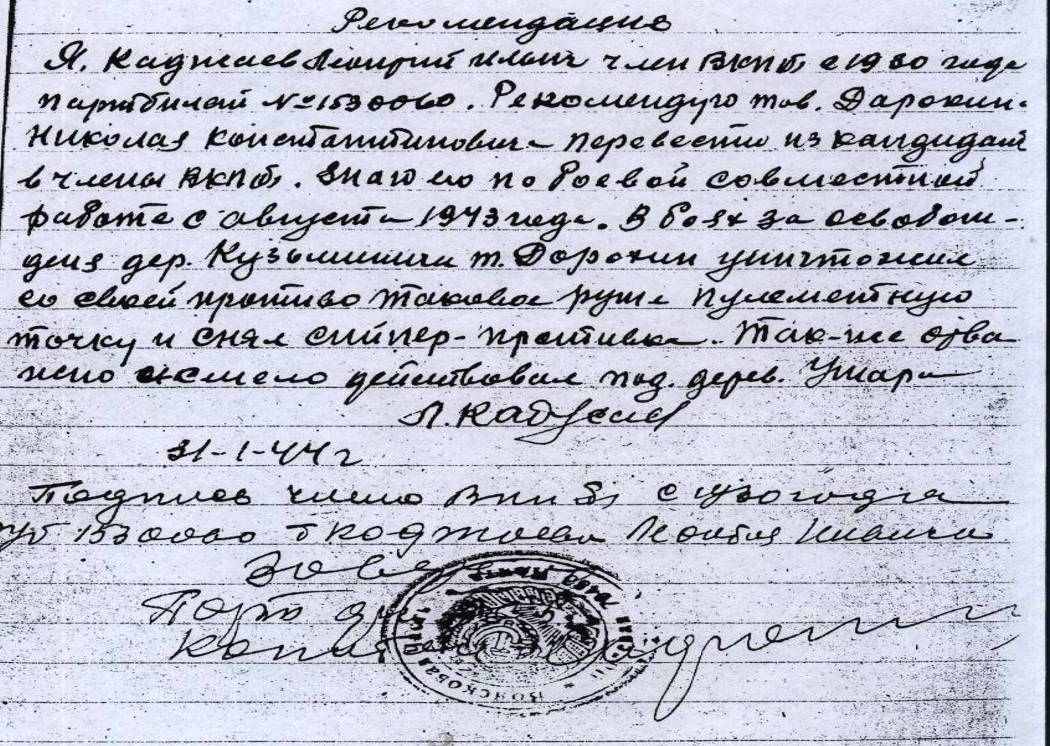 Рекомендация
Я. Каджаев Леонтий Ильич член ВКПб с 1930 года
партбилет № 1530060. Рекомендую тов. Дарокин-
Николая Константиновича перевести из кандидат
в члены ВКПб. Знаю его по боевой совместной
работе с августа 1943 года. В боях за освобож-
дения дер. Кузьминичи т. Дорокин уничтожил
со своей противо таковое руже пулеметную
точку и снял снийпер-противка. Так-же отва
жно и смело действовал под. дерев.
Л. Кад
31-1-44 г
Подпись члена ВКПб с 1930 года
Каджаева
Завер
Парто
Капит
Войсковая